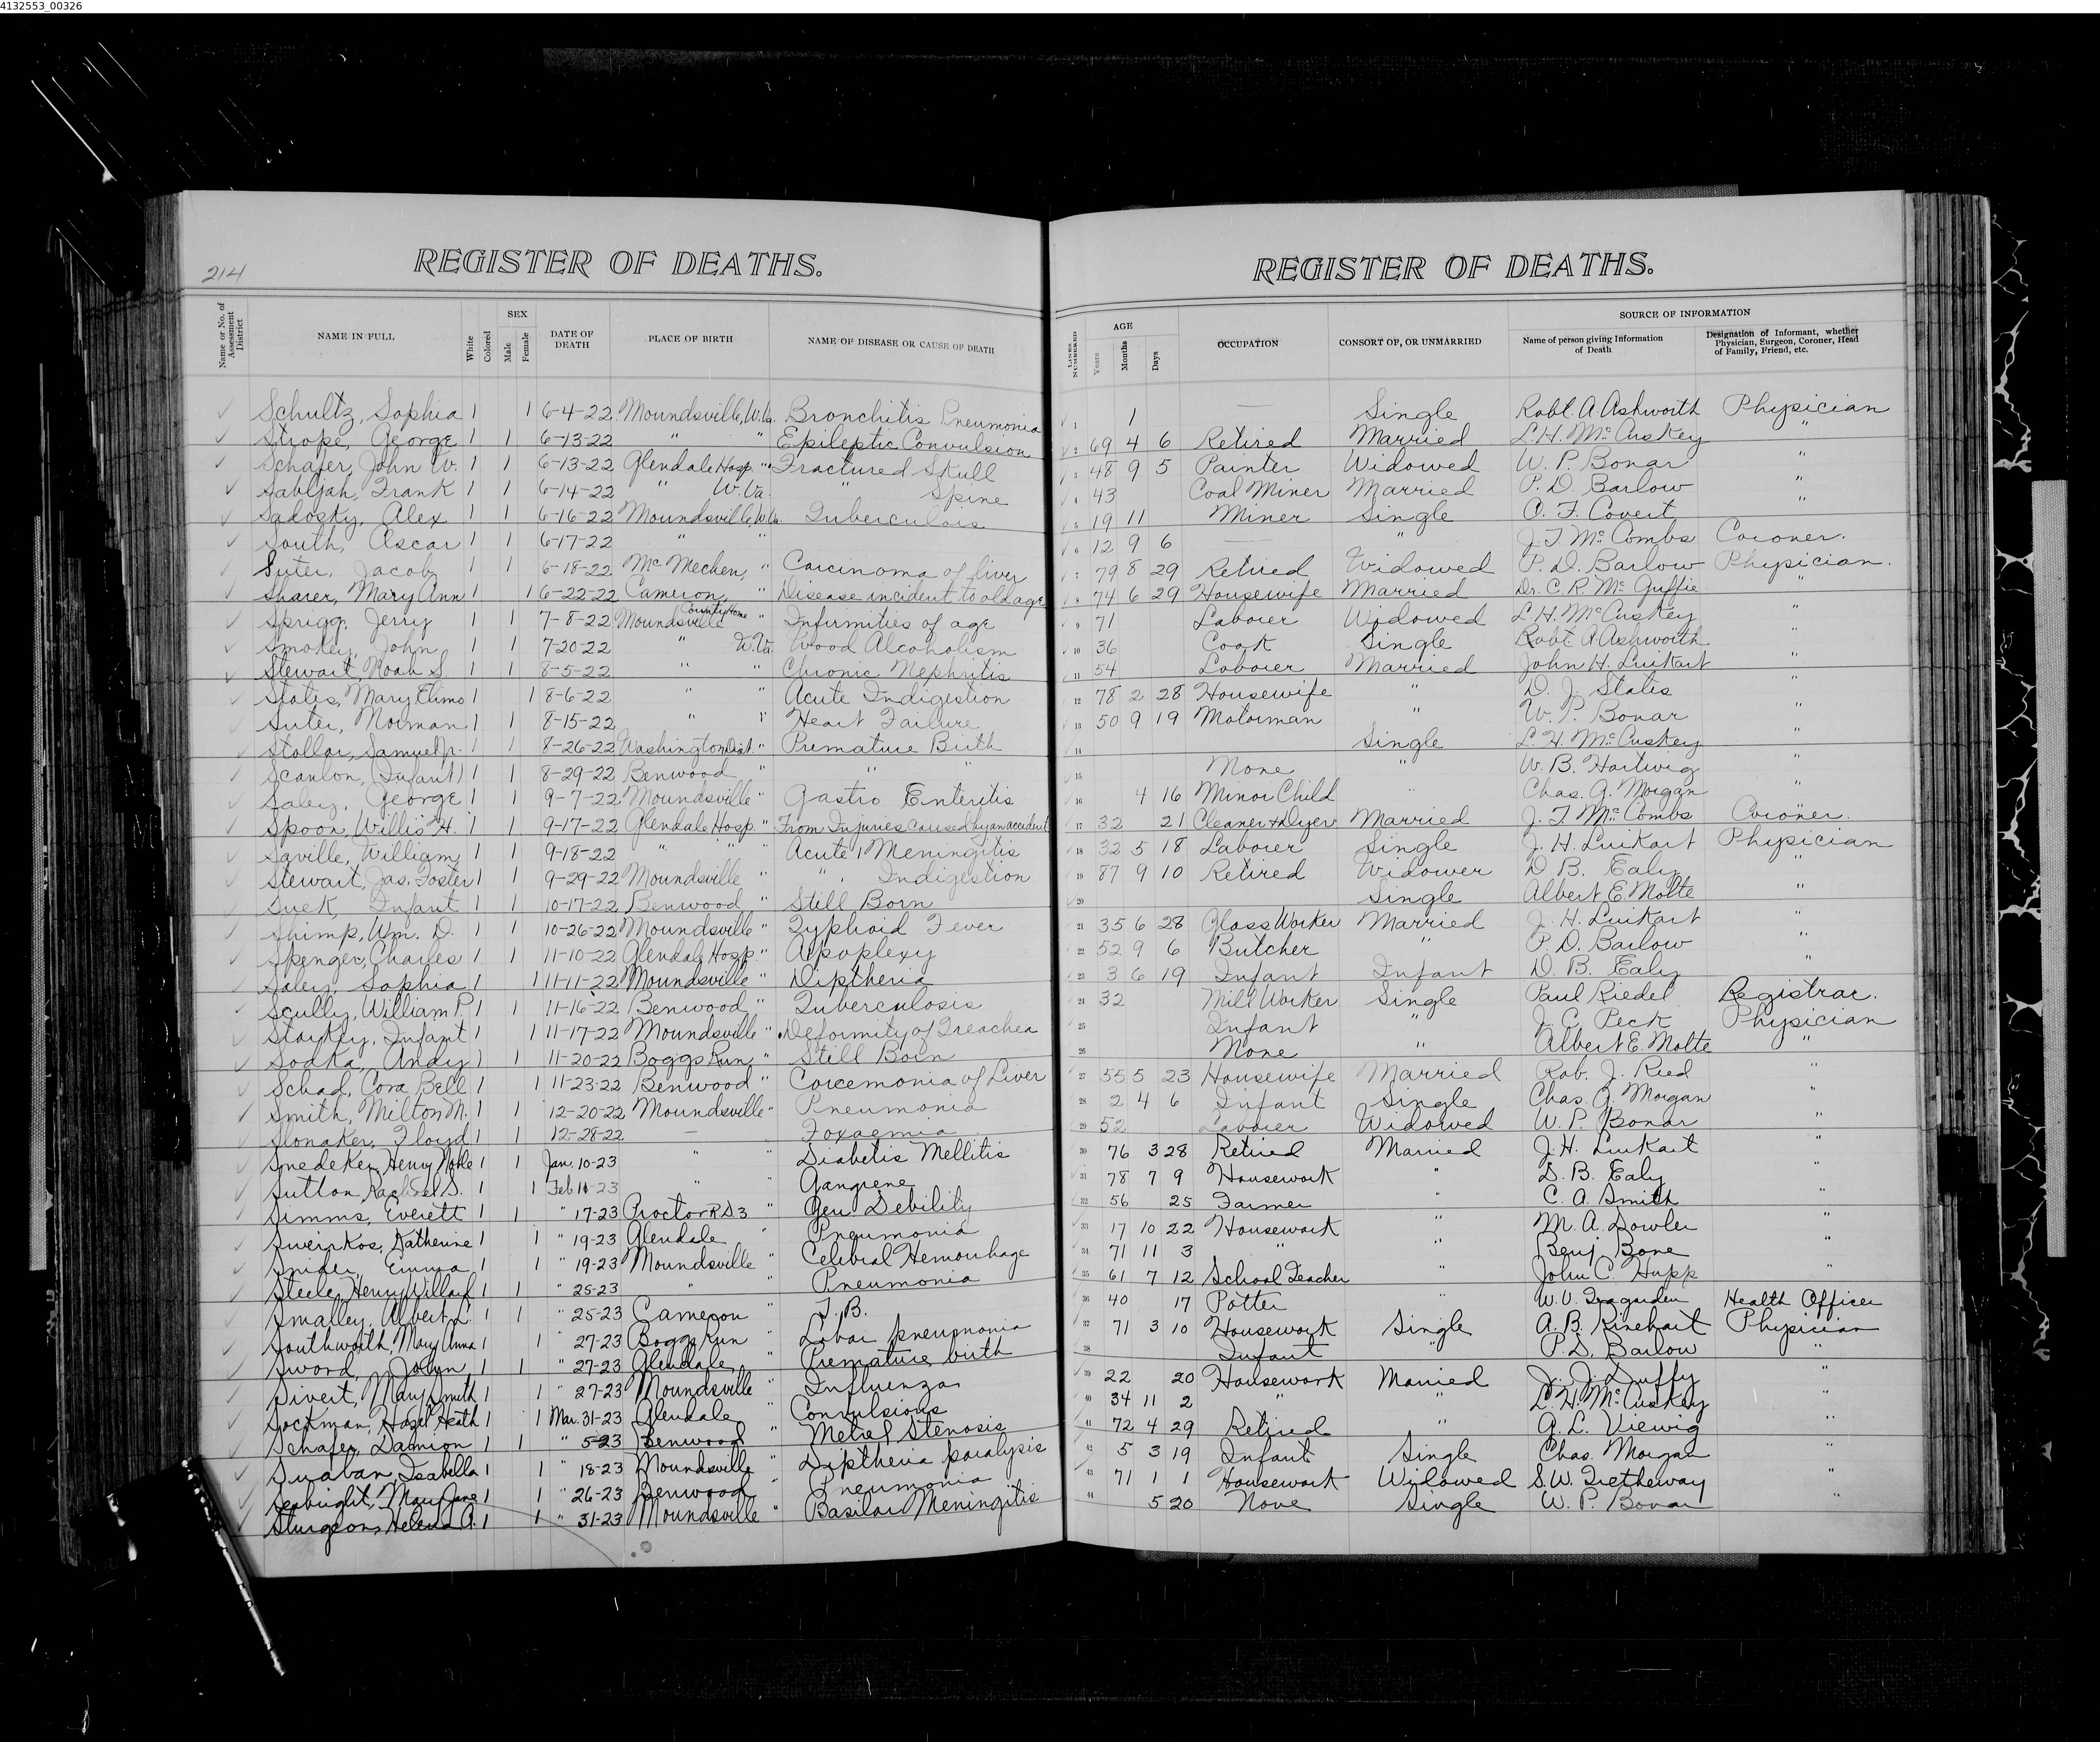 4132553_00326
214
REGISTER OF DEATHS.
Name or No. of Assessment District
NAME IN FULL
White
Colored
SEX
Male
Female
DATE OF DEATH
PLACE OF BIRTH
NAME OF DISEASE OR CAUSE OF DEATH
Schultz, Sophia 1 1 6-4-22 Moundsville, W.Va. Bronchitis Pneumonia
Strope, George 1 1 6-13-22 " " Epileptic Convulsion
Schafer, John W. 1 1 6-13-22 Glendale Hosp. " Fractured Skull
Sabljah, Frank 1 1 6-14-22 " W.Va. " Spine
Sadosky, Alex 1 1 6-16-22 Moundsville, W.Va. Tuberculois
South, Oscar 1 1 6-17-22 " "
Suter, Jacob 1 1 6-18-22 Mc Mechen, " Carcinoma of liver
Sharer, Mary Ann 1 1 6-22-22 Cameron, " Disease incident to old age
Sprigg, Jerry 1 1 7-8-22 Moundsville County Home " Infirmities of age
Smokey, John 1 1 7-20-22 " W.Va. Wood Alcoholism
Stewart, Noah S. 1 1 8-5-22 " " Chronic Nephritis
States, Mary Elima 1 1 8-6-22 " " Acute Indigestion
Suter, Norman 1 1 8-15-22 " " Heart Failure
Stollar, Samuel Jr. 1 1 8-26-22 Washington Dist. " Premature Birth
Scanlon, (Infant) 1 1 8-29-22 Benwood " " "
Saley, George 1 1 9-7-22 Moundsville " Gastro Enteritis
Spoon, Willis H. 1 1 9-17-22 Glendale Hosp. " From Injuries caused by an accident
Saville, William 1 1 9-18-22 " " " Acute Meningitis
Stewart, Jas. Foster 1 1 9-29-22 Moundsville " " Indigestion
Suek, Infant 1 1 10-17-22 Benwood " Still Born
Shimp, Wm. D. 1 1 10-26-22 Moundsville " Typhoid Fever
Spenger, Charles 1 1 11-10-22 Glendale Hosp. " Appoplexy
Saley, Sophia 1 1 11-11-22 Moundsville " Diptheria
Scully, William P. 1 1 11-16-22 Benwood " Tuberculosis
Starkey, Infant 1 1 11-17-22 Moundsville " Deformity of Treachea
Sodka, Andy 1 1 11-20-22 Boggs Run " Still Born
Schad, Cora Bell 1 1 11-23-22 Benwood " Corcemonia of Liver
Smith, Milton M. 1 1 12-20-22 Moundsville " Pneumonia
Slonaker, Floyd 1 1 12-28-22 — Toxaemia
Snedeker, Henry Noble 1 1 Jan. 10-23 " " Diabetis Mellitis
Sutton, Rachael S. 1 1 Feb 11-23 " " Gangrene
Simms, Everett 1 1 " 17-23 Proctor RD3 " Gen. Debility
Sweirkos, Katherine 1 1 " 19-23 Glendale " Pneumonia
Snider, Emma 1 1 " 19-23 Moundsville " Celebral Hemourhage
Steele, Henry 1 1 " 25-23 " " Pneumonia
Smalley, Albert L. 1 1 " 25-23 Cameron " T.B.
Southworth, Mary Anna 1 1 " 27-23 Boggs Run " Lobar pneumonia
Sword, John 1 1 " 27-23 Glendale " Premature birth
Sivert, Mary Smith 1 1 " 27-23 Moundsville " Influenza
Sockman, Hazel Heath 1 1 Mar. 31-23 Glendale " Convulsions
Schafer, Damion 1 1 " 5-23 Benwood " Metrel Stenosis
Suaban, Isabella 1 1 " 18-23 Moundsville " Diptheria paralysis
Seabright, Mary Jane 1 1 " 26-23 Benwood " Pneumonia
Sturgeon, Helena A. 1 1 " 31-23 Moundsville " Basilar Meningitis
REGISTER OF DEATHS.
LINES NUMBERED
AGE
Years
Months
Days
OCCUPATION
CONSORT OF, OR UNMARRIED
SOURCE OF INFORMATION
Name of person giving Information of Death
Designation of Informant, whether Physician, Surgeon, Coroner, Head of Family, Friend, etc.
1 1 — Single Robt. A Ashworth Physician
2 69 4 6 Retired Married L. H. McCuskey "
3 48 9 5 Painter Widowed W. P. Bonar "
4 43 Coal Miner Married P. D. Barlow "
5 19 11 Miner Single O. F. Covert "
6 12 9 6 — " J. T McCombs Coroner.
7 79 8 29 Retired Widowed P. D. Barlow Physician.
8 74 6 29 Housewife Married Dr. C. R. McGuffie "
9 71 Laborer Widowed L. H. McCuskey "
10 36 Cook Single Robt. A Ashworth "
11 54 Laborer Married John H. Luikart "
12 78 2 28 Housewife " D. J. States "
13 50 9 19 Motorman " W. P. Bonar "
14 Single L. H. McCuskey "
15 None " W. B. Hartwig "
16 4 16 Minor Child " Chas. G. Morgan "
17 32 21 Cleaner & Dyer Married J. T. McCombs Coroner.
18 32 5 18 Laborer Single J. H. Luikart Physician
19 87 9 10 Retired Widower D. B. Ealy "
20 Single Albert E. Motte "
21 35 6 28 Glass Worker Married J. H. Luikart "
22 52 9 6 Butcher " P. D. Barlow "
23 3 6 19 Infant Infant D. B. Ealy "
24 32 Mill Worker Single Paul Riedel Registrar.
25 Infant " J. C. Peck Physician
26 None " Albert E. Motte "
27 55 5 23 Housewife Married Rob. J. Reed "
28 2 4 6 Infant Single Chas. G. Morgan "
29 52 Laborer Widowed W. P. Bonar "
30 76 3 28 Retired Married J. H. Luikart "
31 78 7 9 Housework " D. B. Ealy "
32 56 25 Farmer " C. A. Smith "
33 17 10 22 Housework " M. A. Dowler "
34 71 11 3 " " Benj Bone "
35 61 7 12 School Teacher " John C. Hupp "
36 40 17 Potter " W. V. Teagarden Health Officer
37 71 3 10 Housework Single A. B. Rinehart Physician
38 Infant " P. D. Barlow "
39 22 20 Housework Married J. J. Duffy "
40 34 11 2 " " L. H. McCuskey "
41 72 4 29 Retired " G. L. Viewig "
42 5 3 19 Infant Single Chas. Morgan "
43 71 1 1 Housework Widowed S. W. Tretheway "
44 5 20 None Single W. P. Bonar "